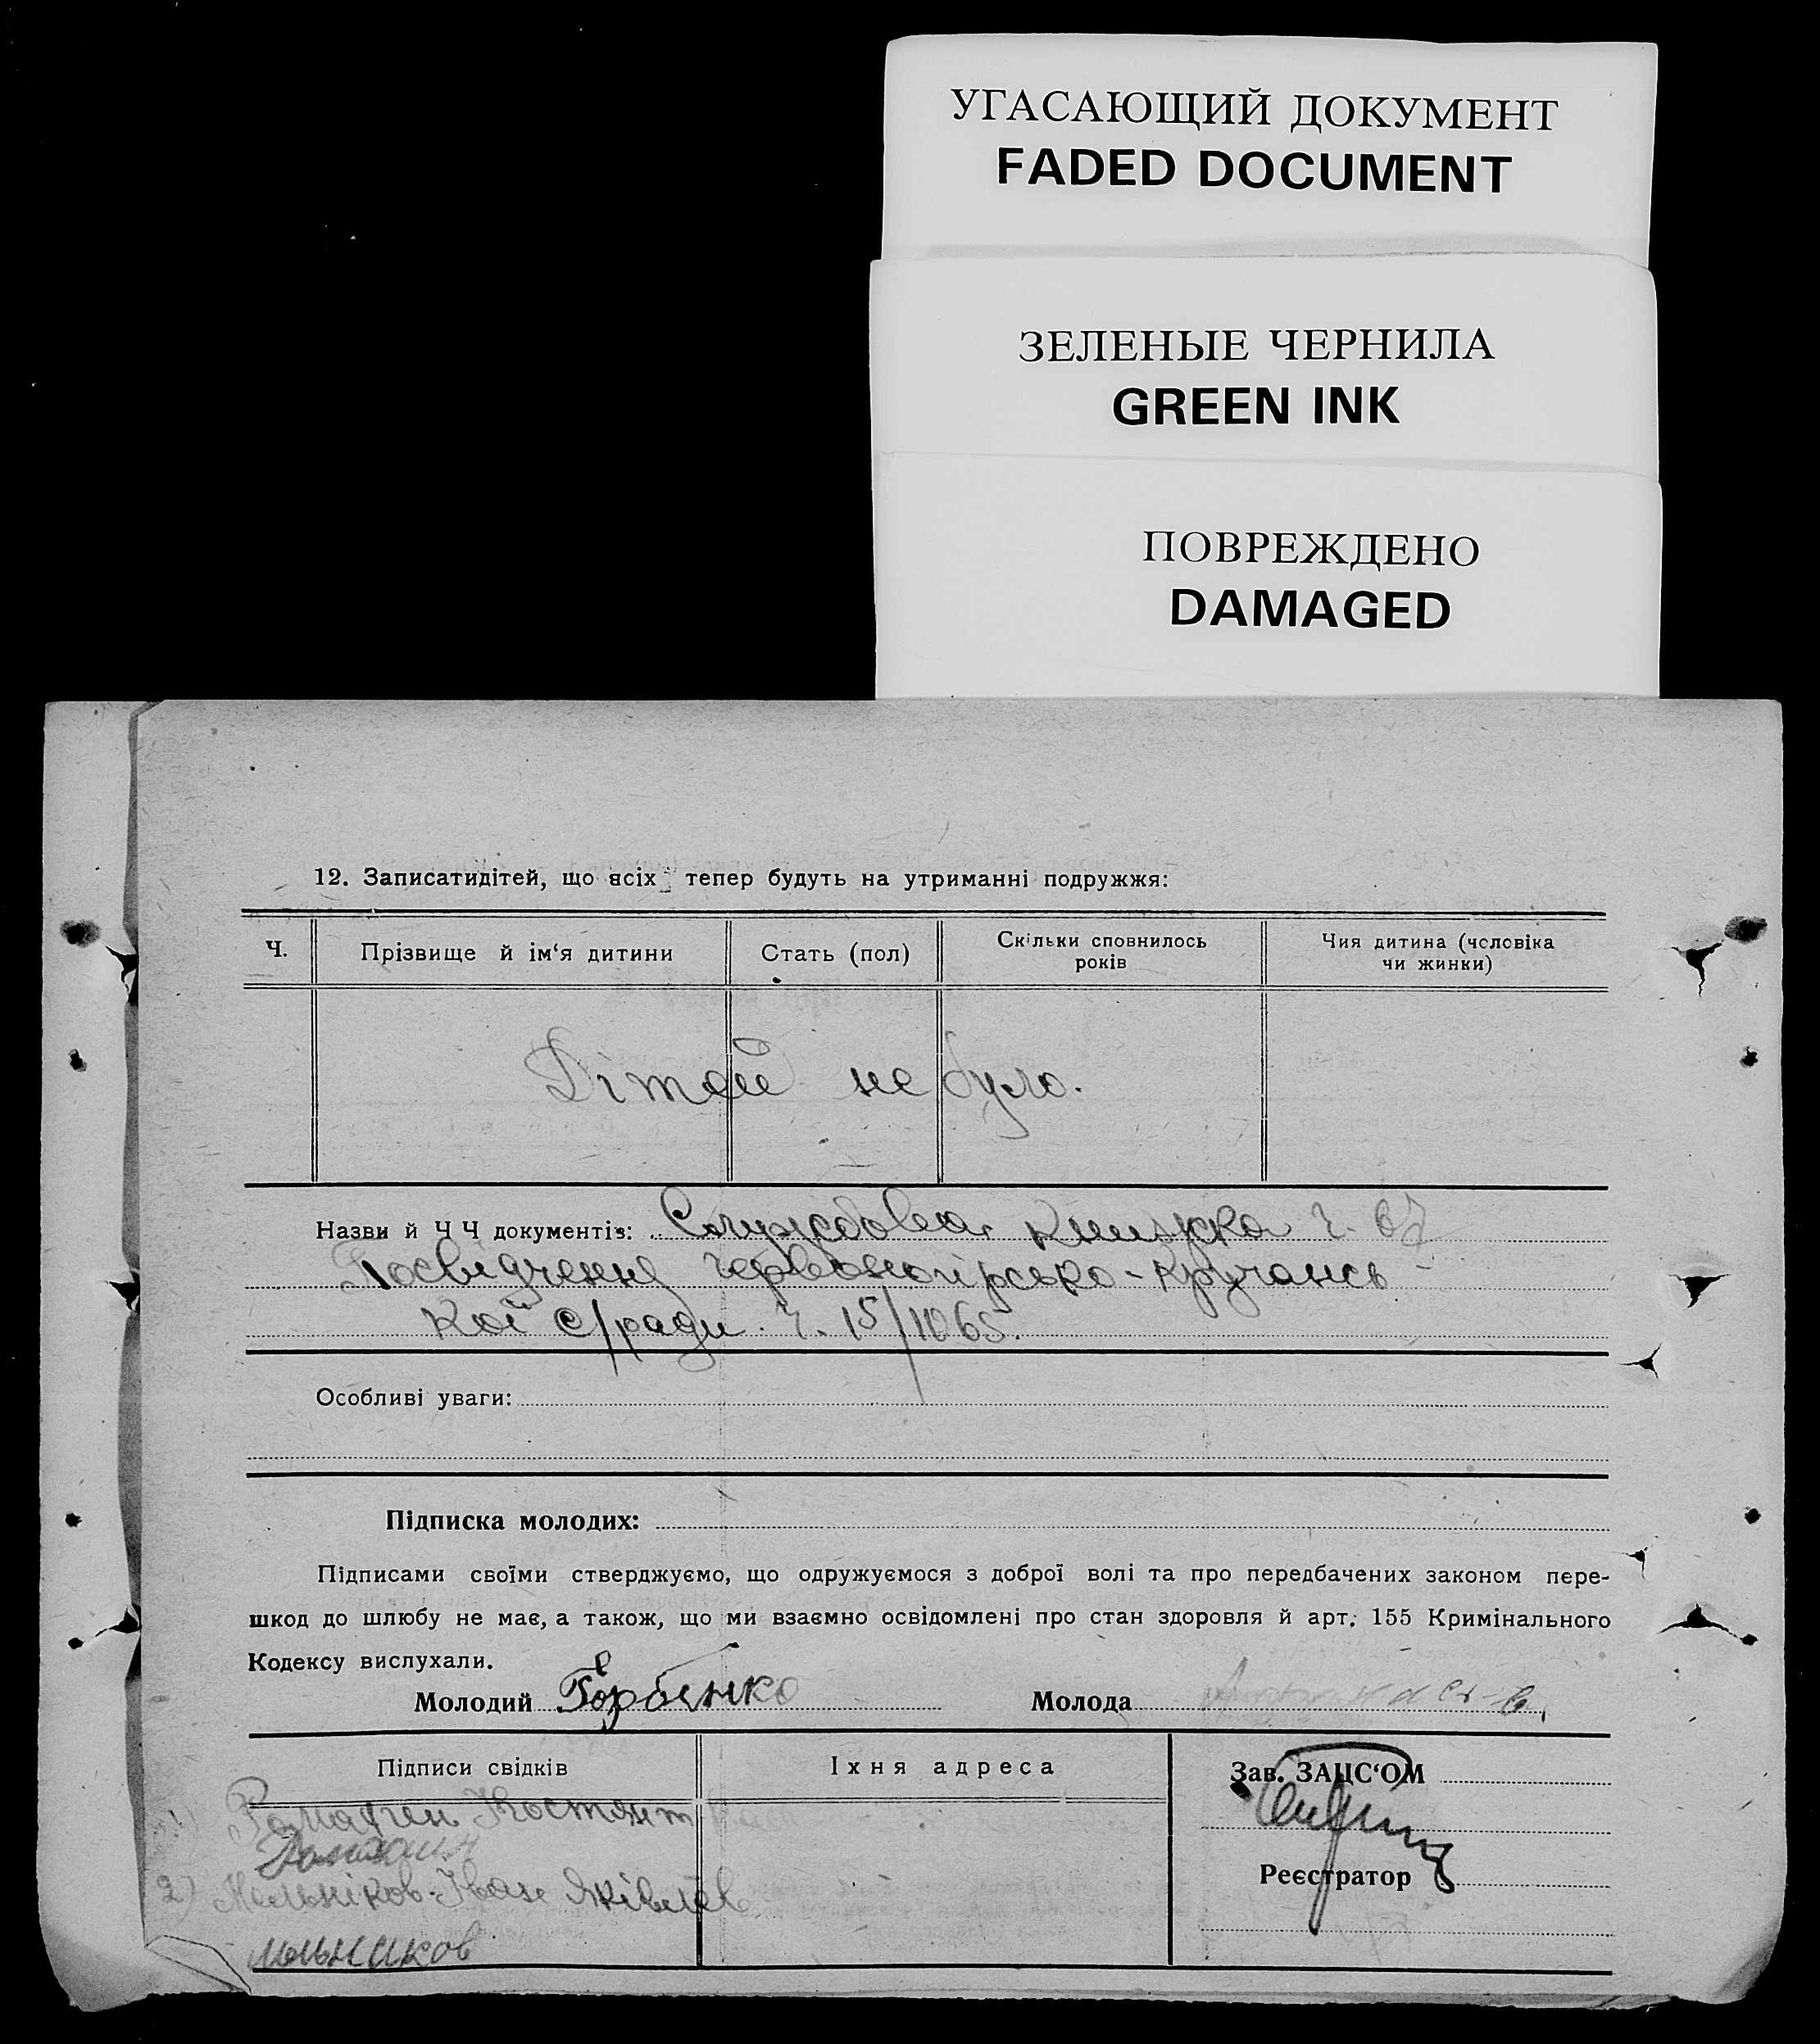 УГАСАЮЩИЙ ДОКУМЕНТ
FADED DOCUMENT
ЗЕЛЕНЫЕ ЧЕРНИЛА
GREEN INK
ПОВРЕЖДЕНО
DAMAGED
12. Записатидітей, що всіх тепер будуть на утриманні подружжя:
Ч.
Прізвище й ім‘я дитини
Стать (пол)
Скільки сповнилось
років
Чия дитина (чоловіка
чи жинки)
Дітей не було.
Назви й Ч Ч документів: Службова книжка ч. 67
Посвідчення Червоногірсько-Кручансь-
кої с/ради. ч. 15/1065.
Особливі уваги:
Підписка молодих:
Підписами своїми стверджуємо, що одружуємося з доброї волі та про передбачених законом пере-
шкод до шлюбу не має, а також, що ми взаємно освідомлені про стан здоровля й арт. 155 Кримінального
Кодексу вислухали.
Молодий Горбенко
Молода
Підписи свідків
Іхня адреса
Зав. ЗАЦС‘ОМ
1) Ромадин Костянт
Ромадин
Реєстратор
2) Мельніков Іван Яківлев
Мельников